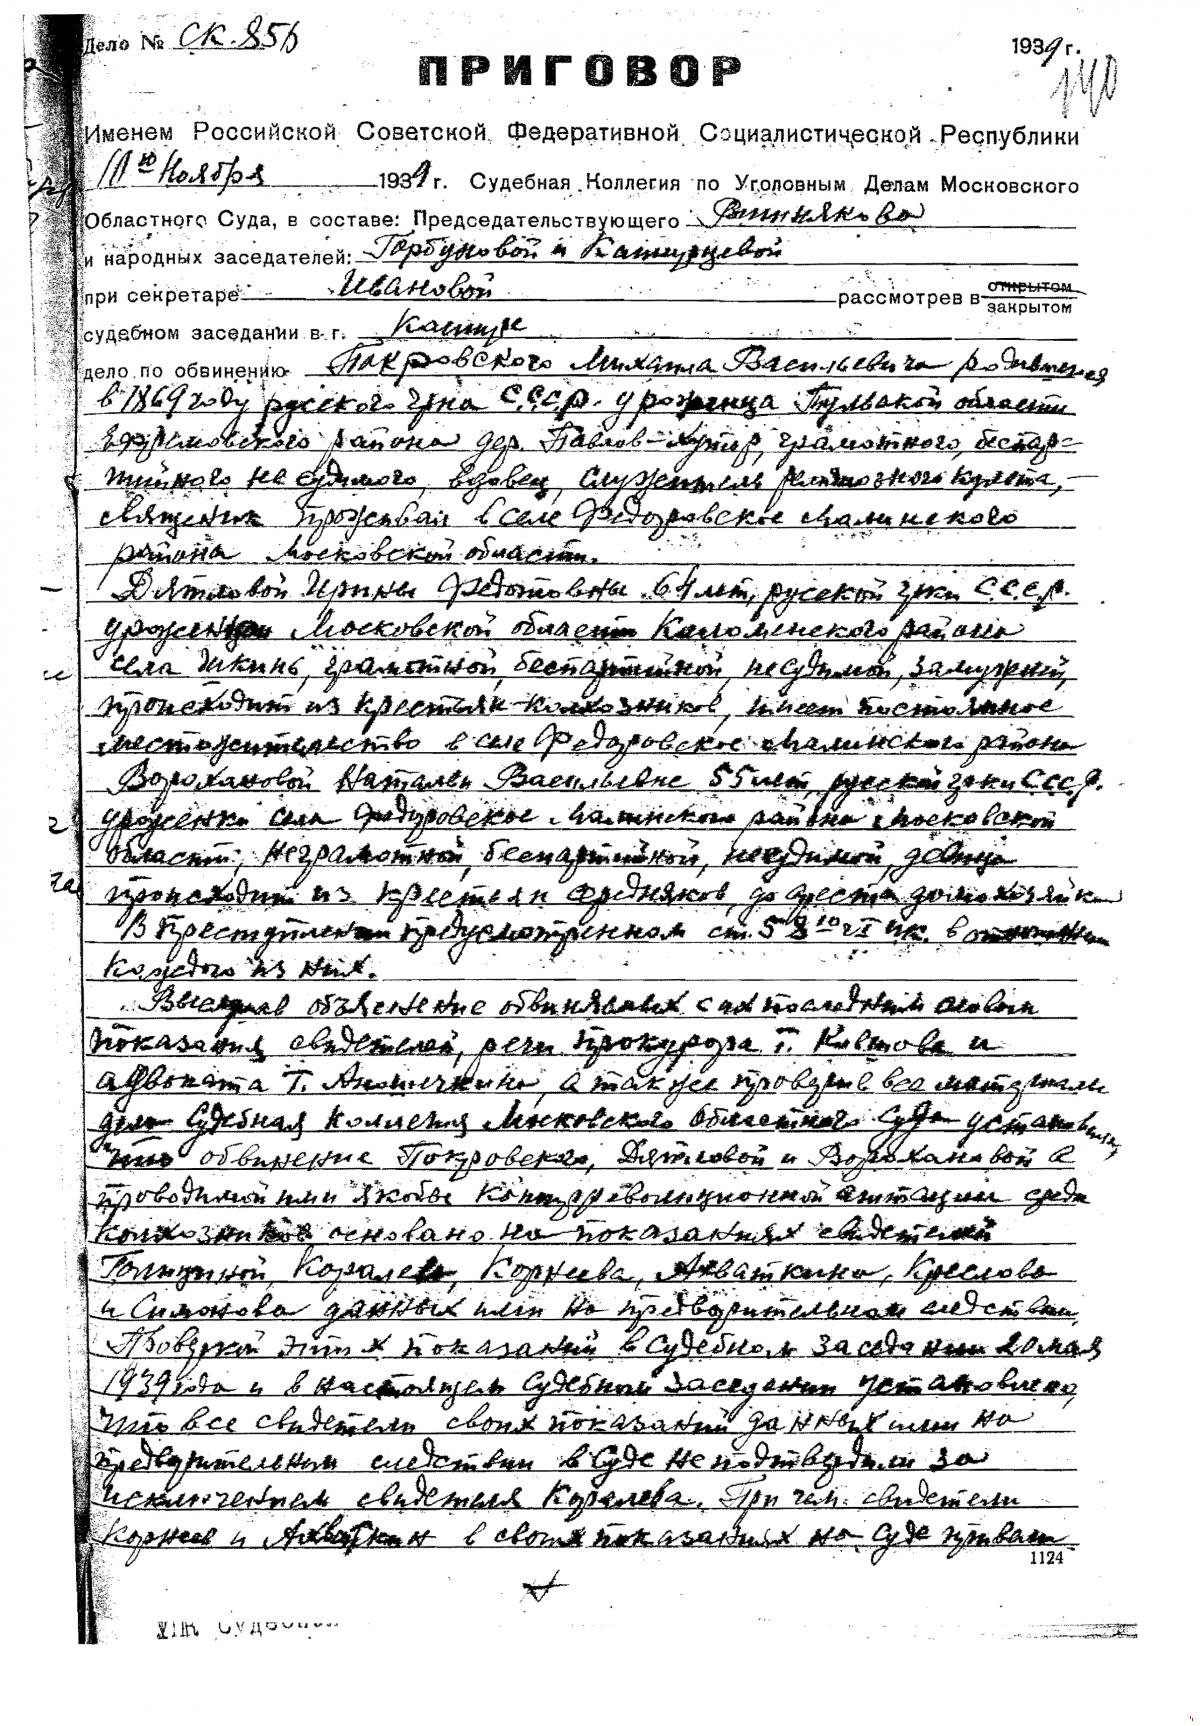 Дело № СК.856 1939 г.
140
ПРИГОВОР
Именем Российской Советской Федеративной Социалистической Республики
Ноября 1939 г. Судебная Коллегия по Уголовным Делам Московского
Областного Суда, в составе: Председательствующего
и народных заседателей: Горбуновой и
при секретаре Ивановой рассмотрев в открытом закрытом
судебном заседании в г. Кашире
дело по обвинению Покровского Михаила Васильевича
в 1869 году русского гр-на С.С.С.Р. уроженца Тульской области
Ефремовского района дер. Павлов-Хутор, грамотного, беспар-
тийного не судимого, вдовец, служитель религиозного культа,
священик проживал в селе Федоровское Малинского
района Московской области.
Дятловой Ирины Федотовны 64 лет, русской гр-ки С.С.С.Р.
Московской области Коломенского района
села Шкинь, грамотной, беспартийной, несудимой, замужней,
происходит из крестьян-колхозников, имеет постоянное
местожительство в селе Федоровское Малинского района
Ворохановой Натальи Васильевне 55 лет русской гр-ки С.С.С.Р.
уроженки села Федоровское Малинского района Московской
области, неграмотной, беспартийной, несудимой, девица
происходит из крестьян середняков, до ареста домохозяйка
В преступлении предусмотренном ст. 58 10 ч I УК. в отношении
каждого из них.
объяснение обвиняемых с их последним словом
показания свидетелей, речи прокурора т. и
адвоката т. а также проверив все материалы
дела Судебная Коллегия Московского Областного Суда установила,
что обвинение Покровского, Дятловой и Ворохановой в
проводимой ими якобы контрреволюционной агитации среди
колхозников основано на показаниях свидетелей
Голицыной, Королева, Корнеева, Ахваткина, Креслова
и Симонова данных ими на предворительном следствии,
Проверкой этих показаний в судебном заседании 20 мая
1939 года и в настоящем судебном заседании установлено,
что все свидетели своих показаний данных ими на
предворительном следствии в суде не подтвердили за
исключением свидетеля Королева. При чем свидетели
Корнеев и Ахваткин в своих показаниях на суде
1124